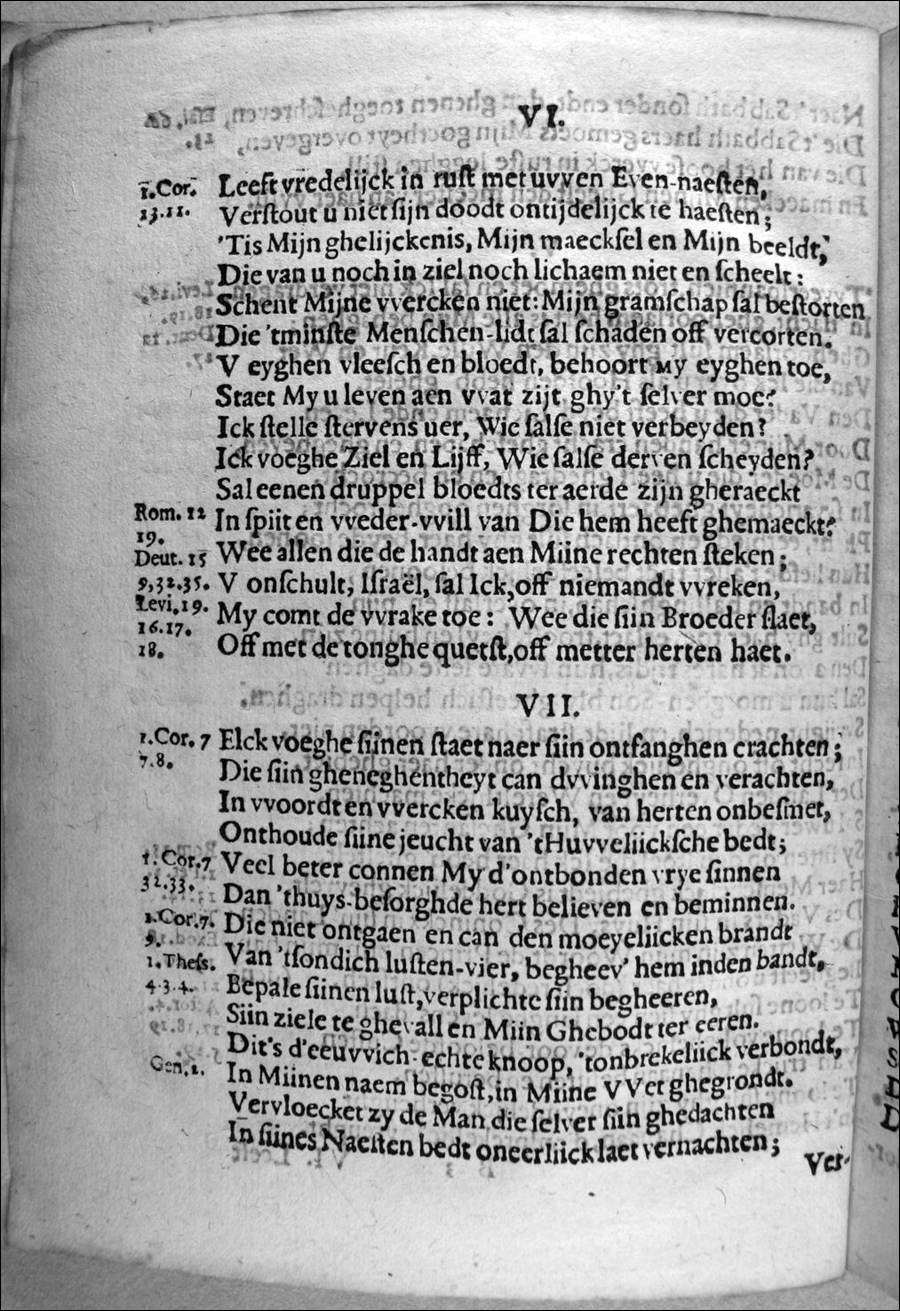 VI.
1.Cor. Leeft vredelijck in rust met uvven Even-naesten,
13.11. Verstout u niet sijn doodt ontijdelijck te haesten;
'Tis Mijn ghelijckenis, Mijn maecksel en Mijn beeldt,
Die van u noch in ziel noch lichaem niet en scheelt:
Schent Mijne vvercken niet: Mijn gramschap sal bestorten
Die 'tminste Menschen-lidt sal schaden off vercorten.
V eyghen vleesch en bloedt, behoort My eyghen toe,
Staet My u leven aen vvat zijt ghy't selver moe?
Ick stelle stervens uer, Wie salse niet verbeyden?
Ick voeghe Ziel en Lijff, Wie salse derven scheyden?
Sal eenen druppel bloedts ter aerde zijn gheraeckt
Rom. 12 In spiit en vveder-vvill van Die hem heeft ghemaeckt?
19.
Deut. 15 Wee allen die de handt aen Miine rechten steken;
9,32.35. V onschult, Israël, sal Ick, off niemandt vvreken,
Levi,19. My comt de vvrake toe: Wee die siin Broeder slaet,
16.17.
18. Off met de tonghe quetst, off metter herten haet.
VII.
1.Cor. 7 Elck voeghe siinen staet naer siin ontfanghen crachten;
7.8. Die siin gheneghentheyt can dvvinghen en verachten,
In vvoordt en vvercken kuysch, van herten onbesmet,
Onthoude siine jeucht van 'tHuvveliicksche bedt;
1.Cor.7 Veel beter connen My d'ontbonden vrye sinnen
32.33. Dan 'thuys-besorghde hert believen en beminnen.
1.Cor.7. Die niet ontgaen en can den moeyeliicken brandt
9. Van 'tsondich lusten-vier, begheev' hem inden bandt,
1.Thess.
4.3.4. Bepale siinen lust, verplichte siin begheeren,
Siin ziele te ghevall en Miin Ghebodt ter eeren.
Dit's d'eeuvvich-echte knoop, 'tonbrekeliick verbondt,
Gen,2. In Miinen naem begost, in Miine VVet ghegrondt.
Vervloecket zy de Man die selver siin ghedachten
In siines Naesten bedt oneerliick laet vernachten;
Ver-